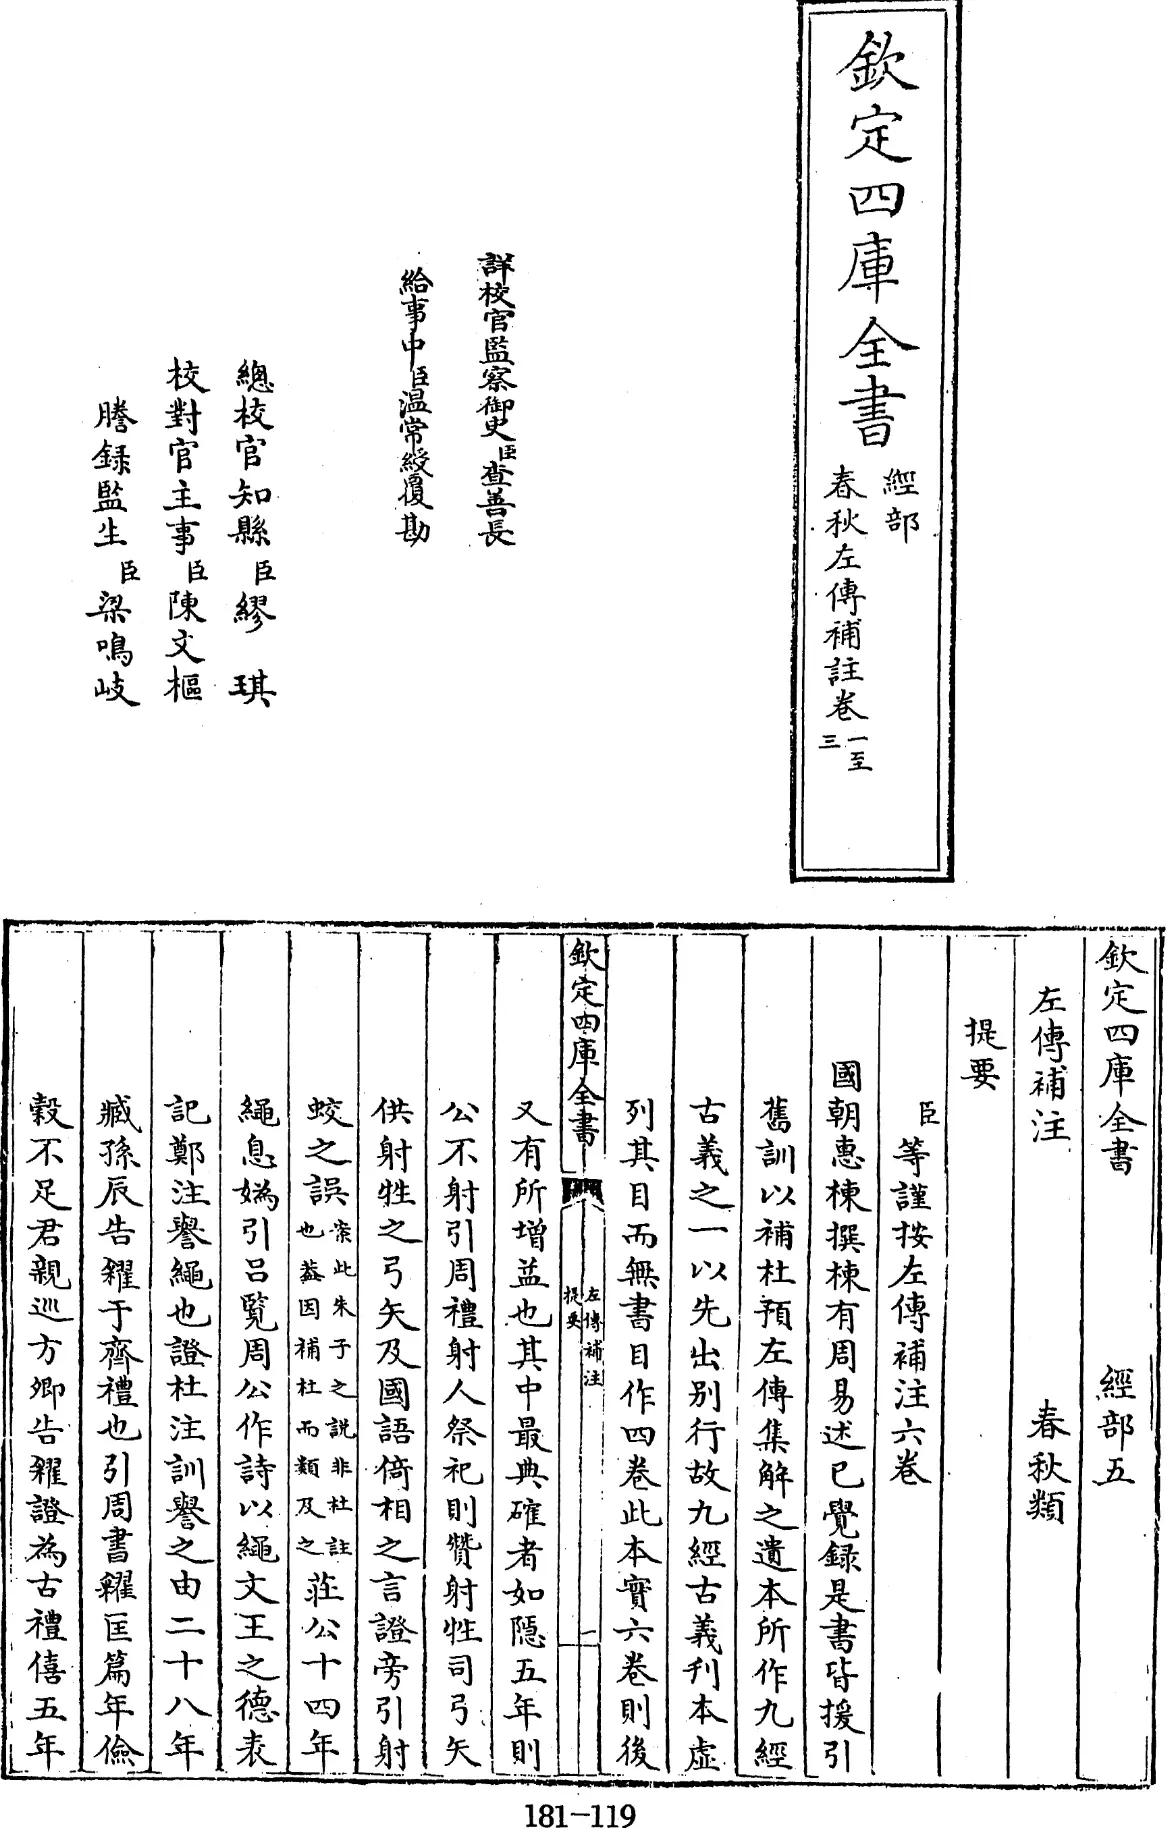 欽定四庫全書
經部
春秋左傳補註卷一至三
詳校官監察御史臣查善長
給事中臣温常綬覆勘
總校官知縣臣繆琪
校對官主事臣陳文樞
謄録監生臣梁鳴岐
欽定四庫全書 經部五
左傳補注 春秋類
提要
臣等謹按左傳補注六卷
國朝惠棟撰棟有周易述已覺録是書皆援引
舊訓以補杜預左傳集解之遺本所作九經
古義之一以先出别行故九經古義刋本虚
列其目而無書目作四卷此本實六卷則後
欽定四庫全書 左傳補注 提要 一
又有所增益也其中最典確者如隱五年則
公不射引周禮射人祭祀則贊射牲司弓矢
供射牲之弓矢及國語倚相之言證旁引射
蛟之誤案此朱子之説非杜註也葢因補杜而類及之莊公十四年
繩息媯引吕覽周公作詩以繩文王之德表
記鄭注譽繩也證杜注訓譽之由二十八年
臧孫辰告糴于齊禮也引周書糴匡篇年儉
穀不足君親巡方卿告糴證為古禮僖五年
181-119